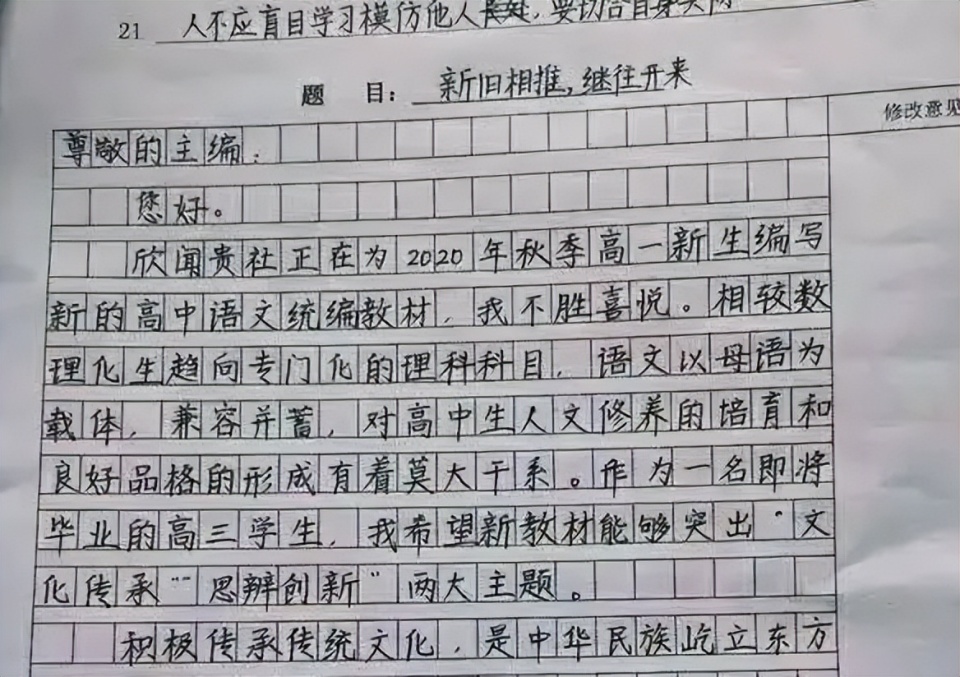 21 人不应盲目学习模仿他人长处,要切合自身实际
题 目: 新旧相推,继往开来
修改意见
尊敬的主编:
您好。
欣闻贵社正在为2020年秋季高一新生编写
新的高中语文统编教材,我不胜喜悦。相较数
理化生趋向专门化的理科科目,语文以母语为
载体,兼容并蓄,对高中生人文修养的培育和
良好品格的形成有着莫大干系。作为一名即将
毕业的高三学生,我希望新教材能够突出“文
化传承”“思辨创新”两大主题。
积极传承传统文化,是中华民族屹立东方